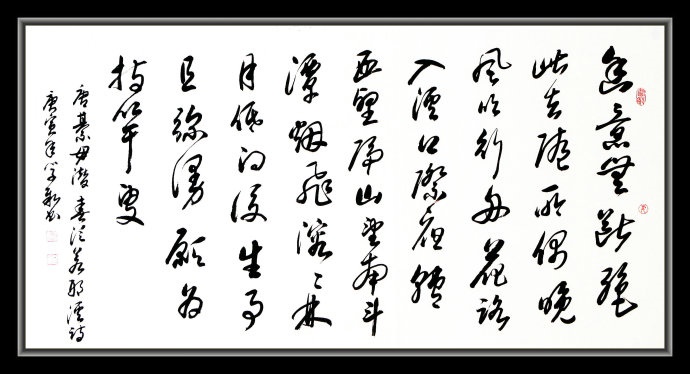 幽意無斷絕
此去隨所偶晚
風吹行舟花路
入溪口際夜轉
西壑隔山望南斗
潭煙飛溶〻林
月低向後生事
且彌漫願為
持竿叟
唐綦毋潛春泛若耶溪詩
庚寅年學新書